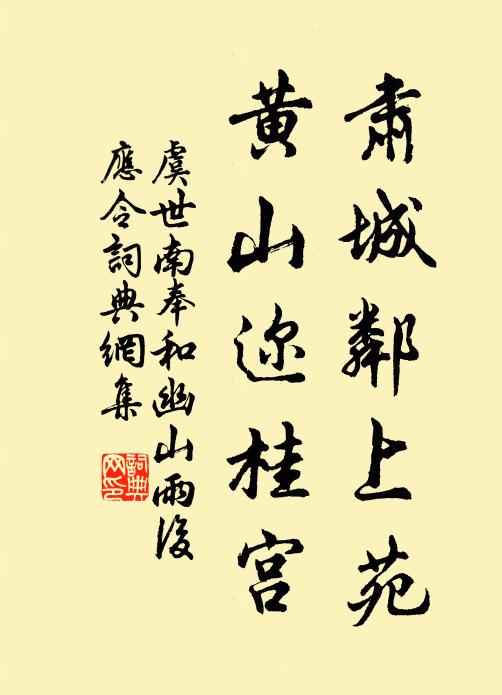 肃城鄰上苑
黄山迩桂宫
虞世南奉和幽山雨後
應令詞典網集
詞典
网印